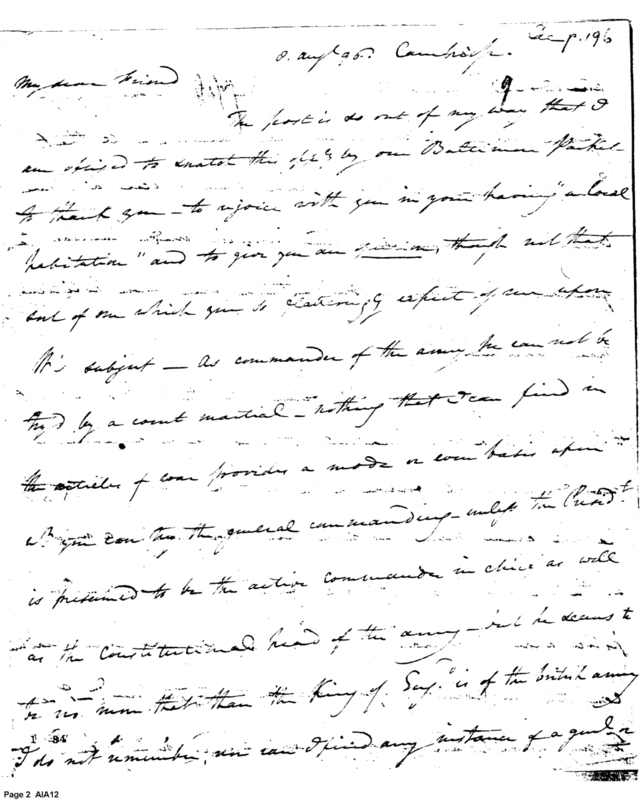 See p. 196
8. augt 96. Cambridge.
My dear Friend
The post is so out of my way that I
am obliged to snatch the by our Baltimore Packet
to thank you – to rejoice with you in your having "a local
habitation" and to give you an opinion, though not that
sort of one which you so expect of me upon
W's subject – As commander of the army he can not be
try'd by a court martial – nothing that I can find in
the articles of war provides a mode or even basis upon
wh. you can try the general commanding – unless the Presidt.
is presumed to be the active commander in chief as well
as the Constitutional head of the army – but he seems to
be no more that than the King of Engd. is of the british army
I do not remember, nor can I find any instance of a genl
Page 2 AIA12